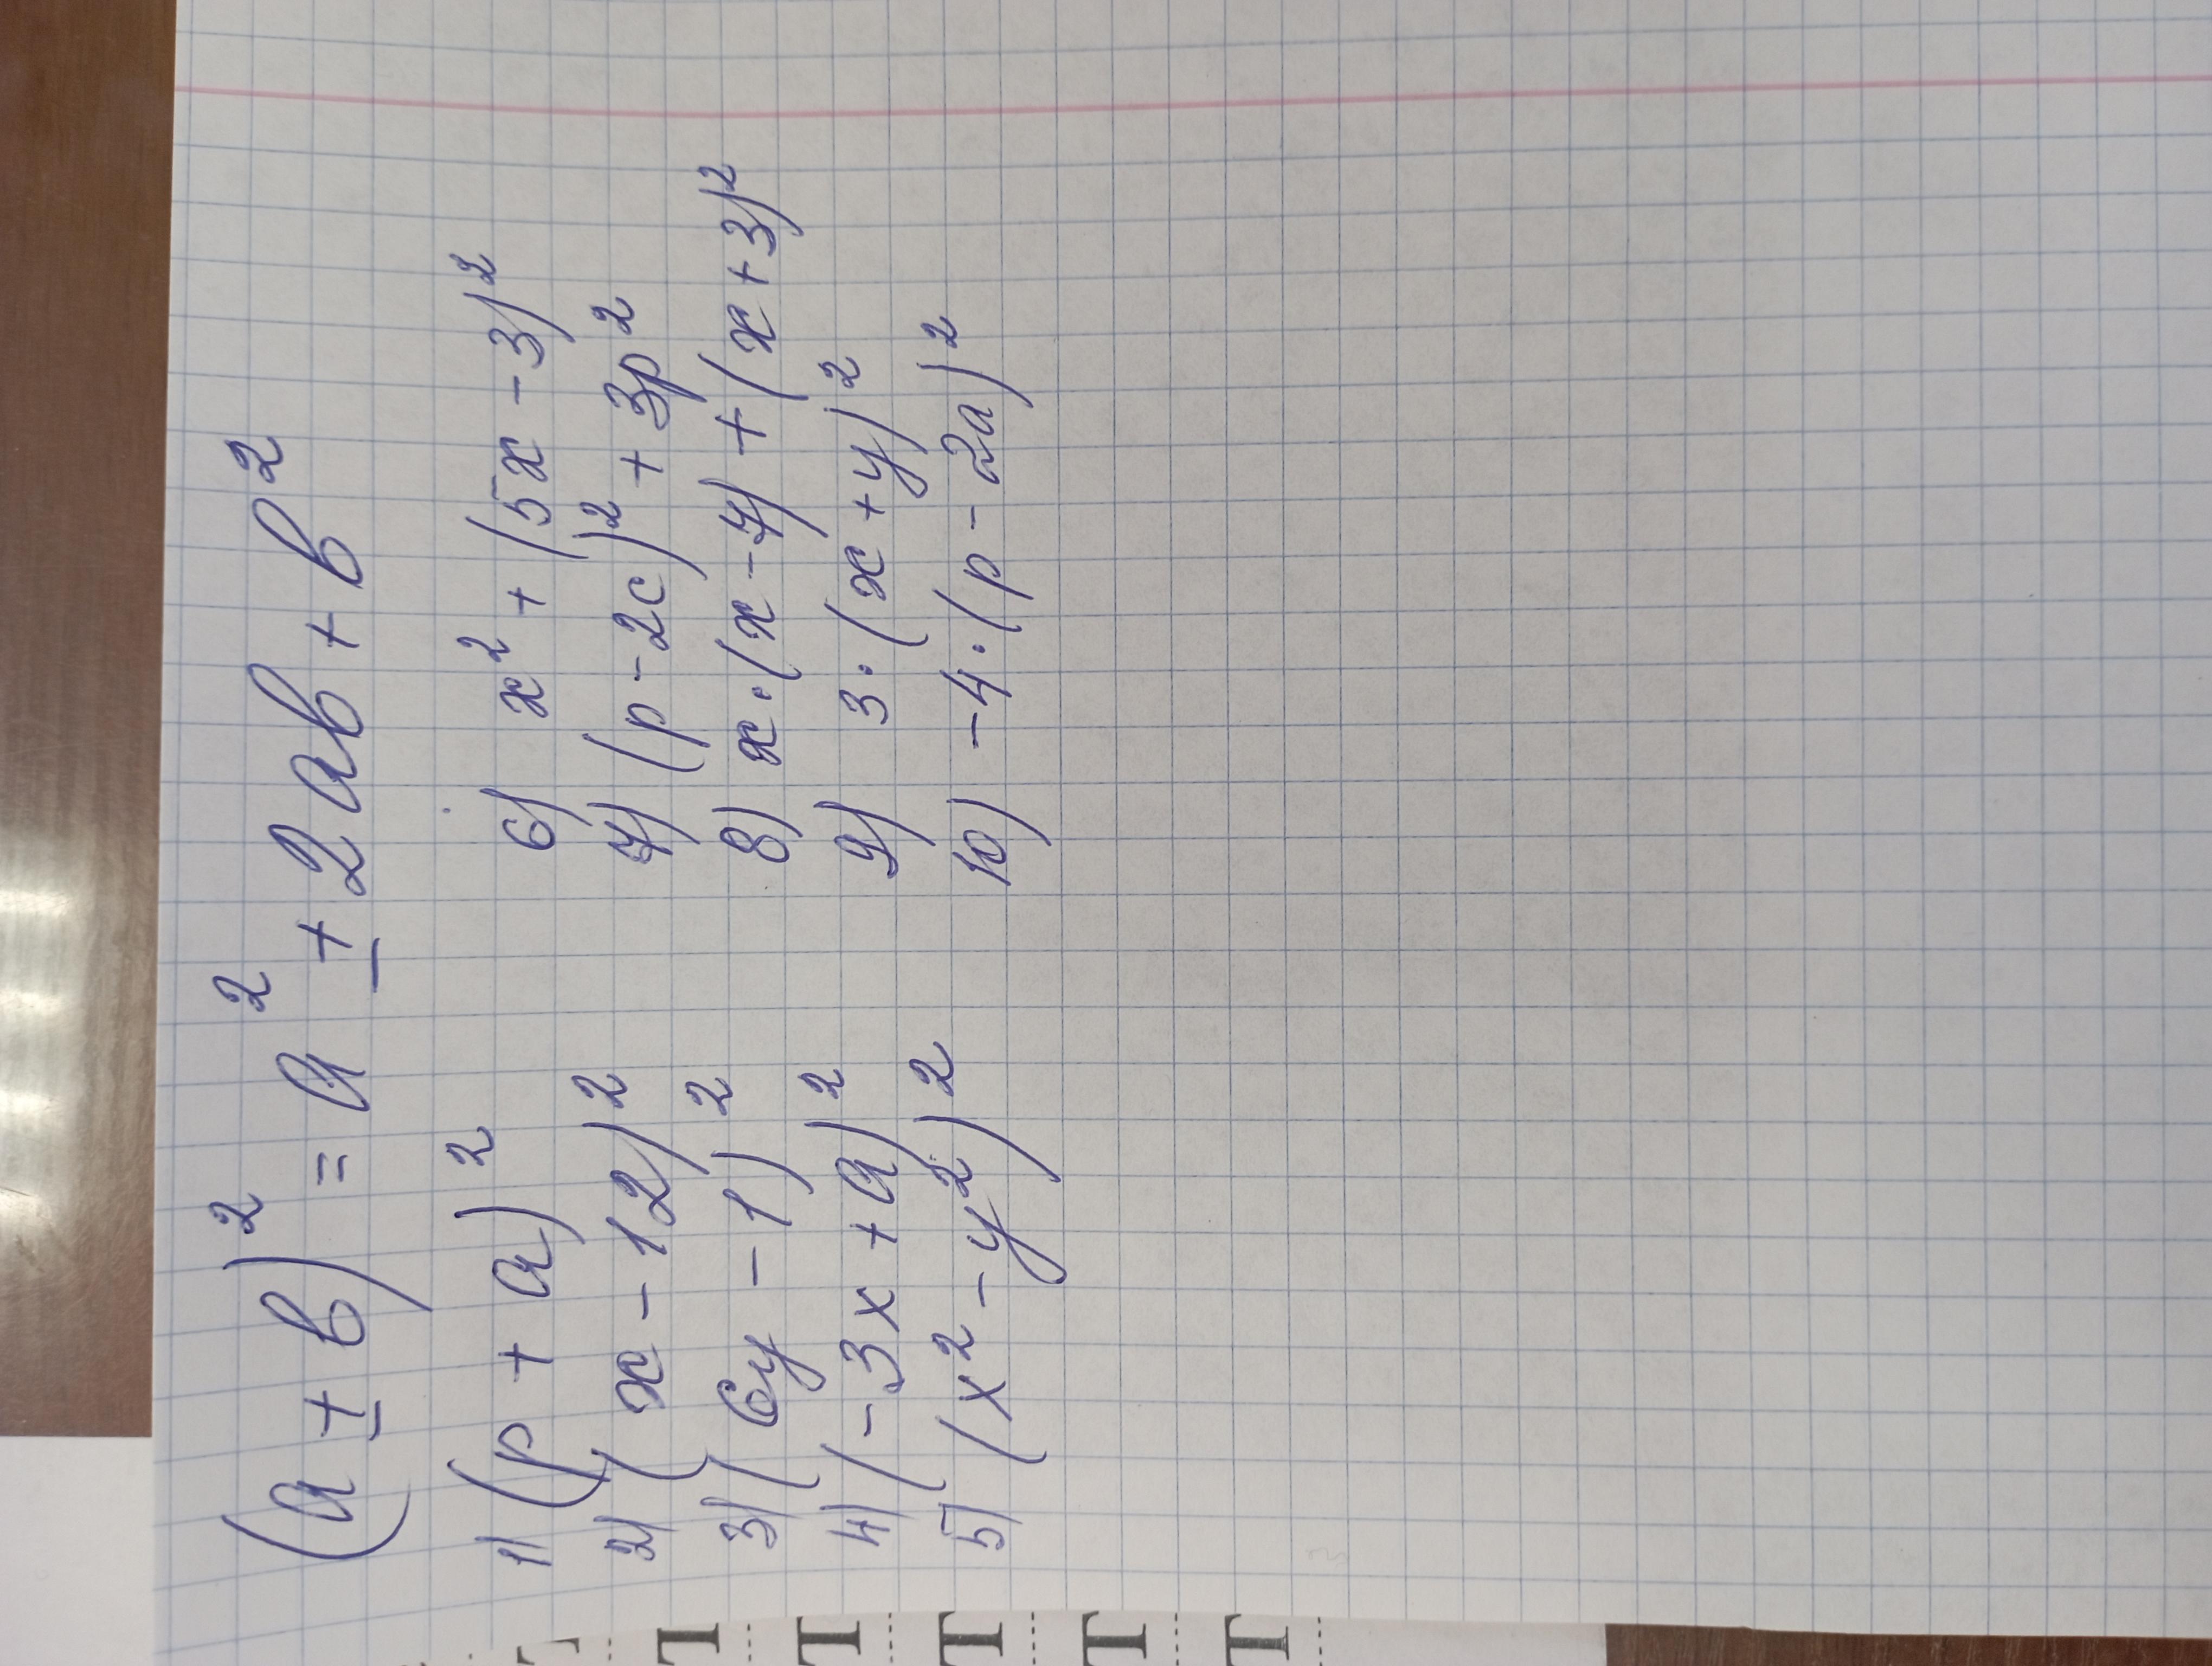 (a ± b)² = a² ± 2ab + b²
1) (p + a)²
2) (x - 12)²
3) (6y - 1)²
4) (-3x + a)²
5) (x² - y²)²
6) x² + (5x - 3)²
7) (p - 2c)² + 3p²
8) x·(x - 7) + (x + 3)²
9) 3·(x + y)²
10) -4·(p - 2a)²
T
T
T
T
T